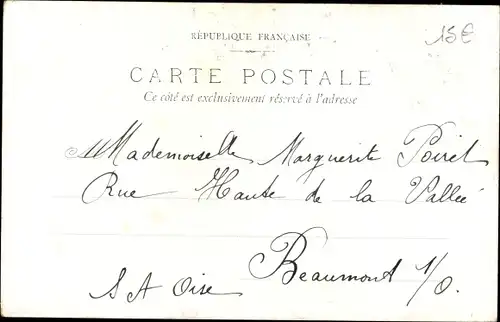 RÉPUBLIQUE FRANÇAISE
15€
CARTE POSTALE
Ce côté est exclusivement réservé à l'adresse
Mademoiselle Marguerite Poiret
Rue Haute de la Vallée
Beaumont s/O.
S et Oise